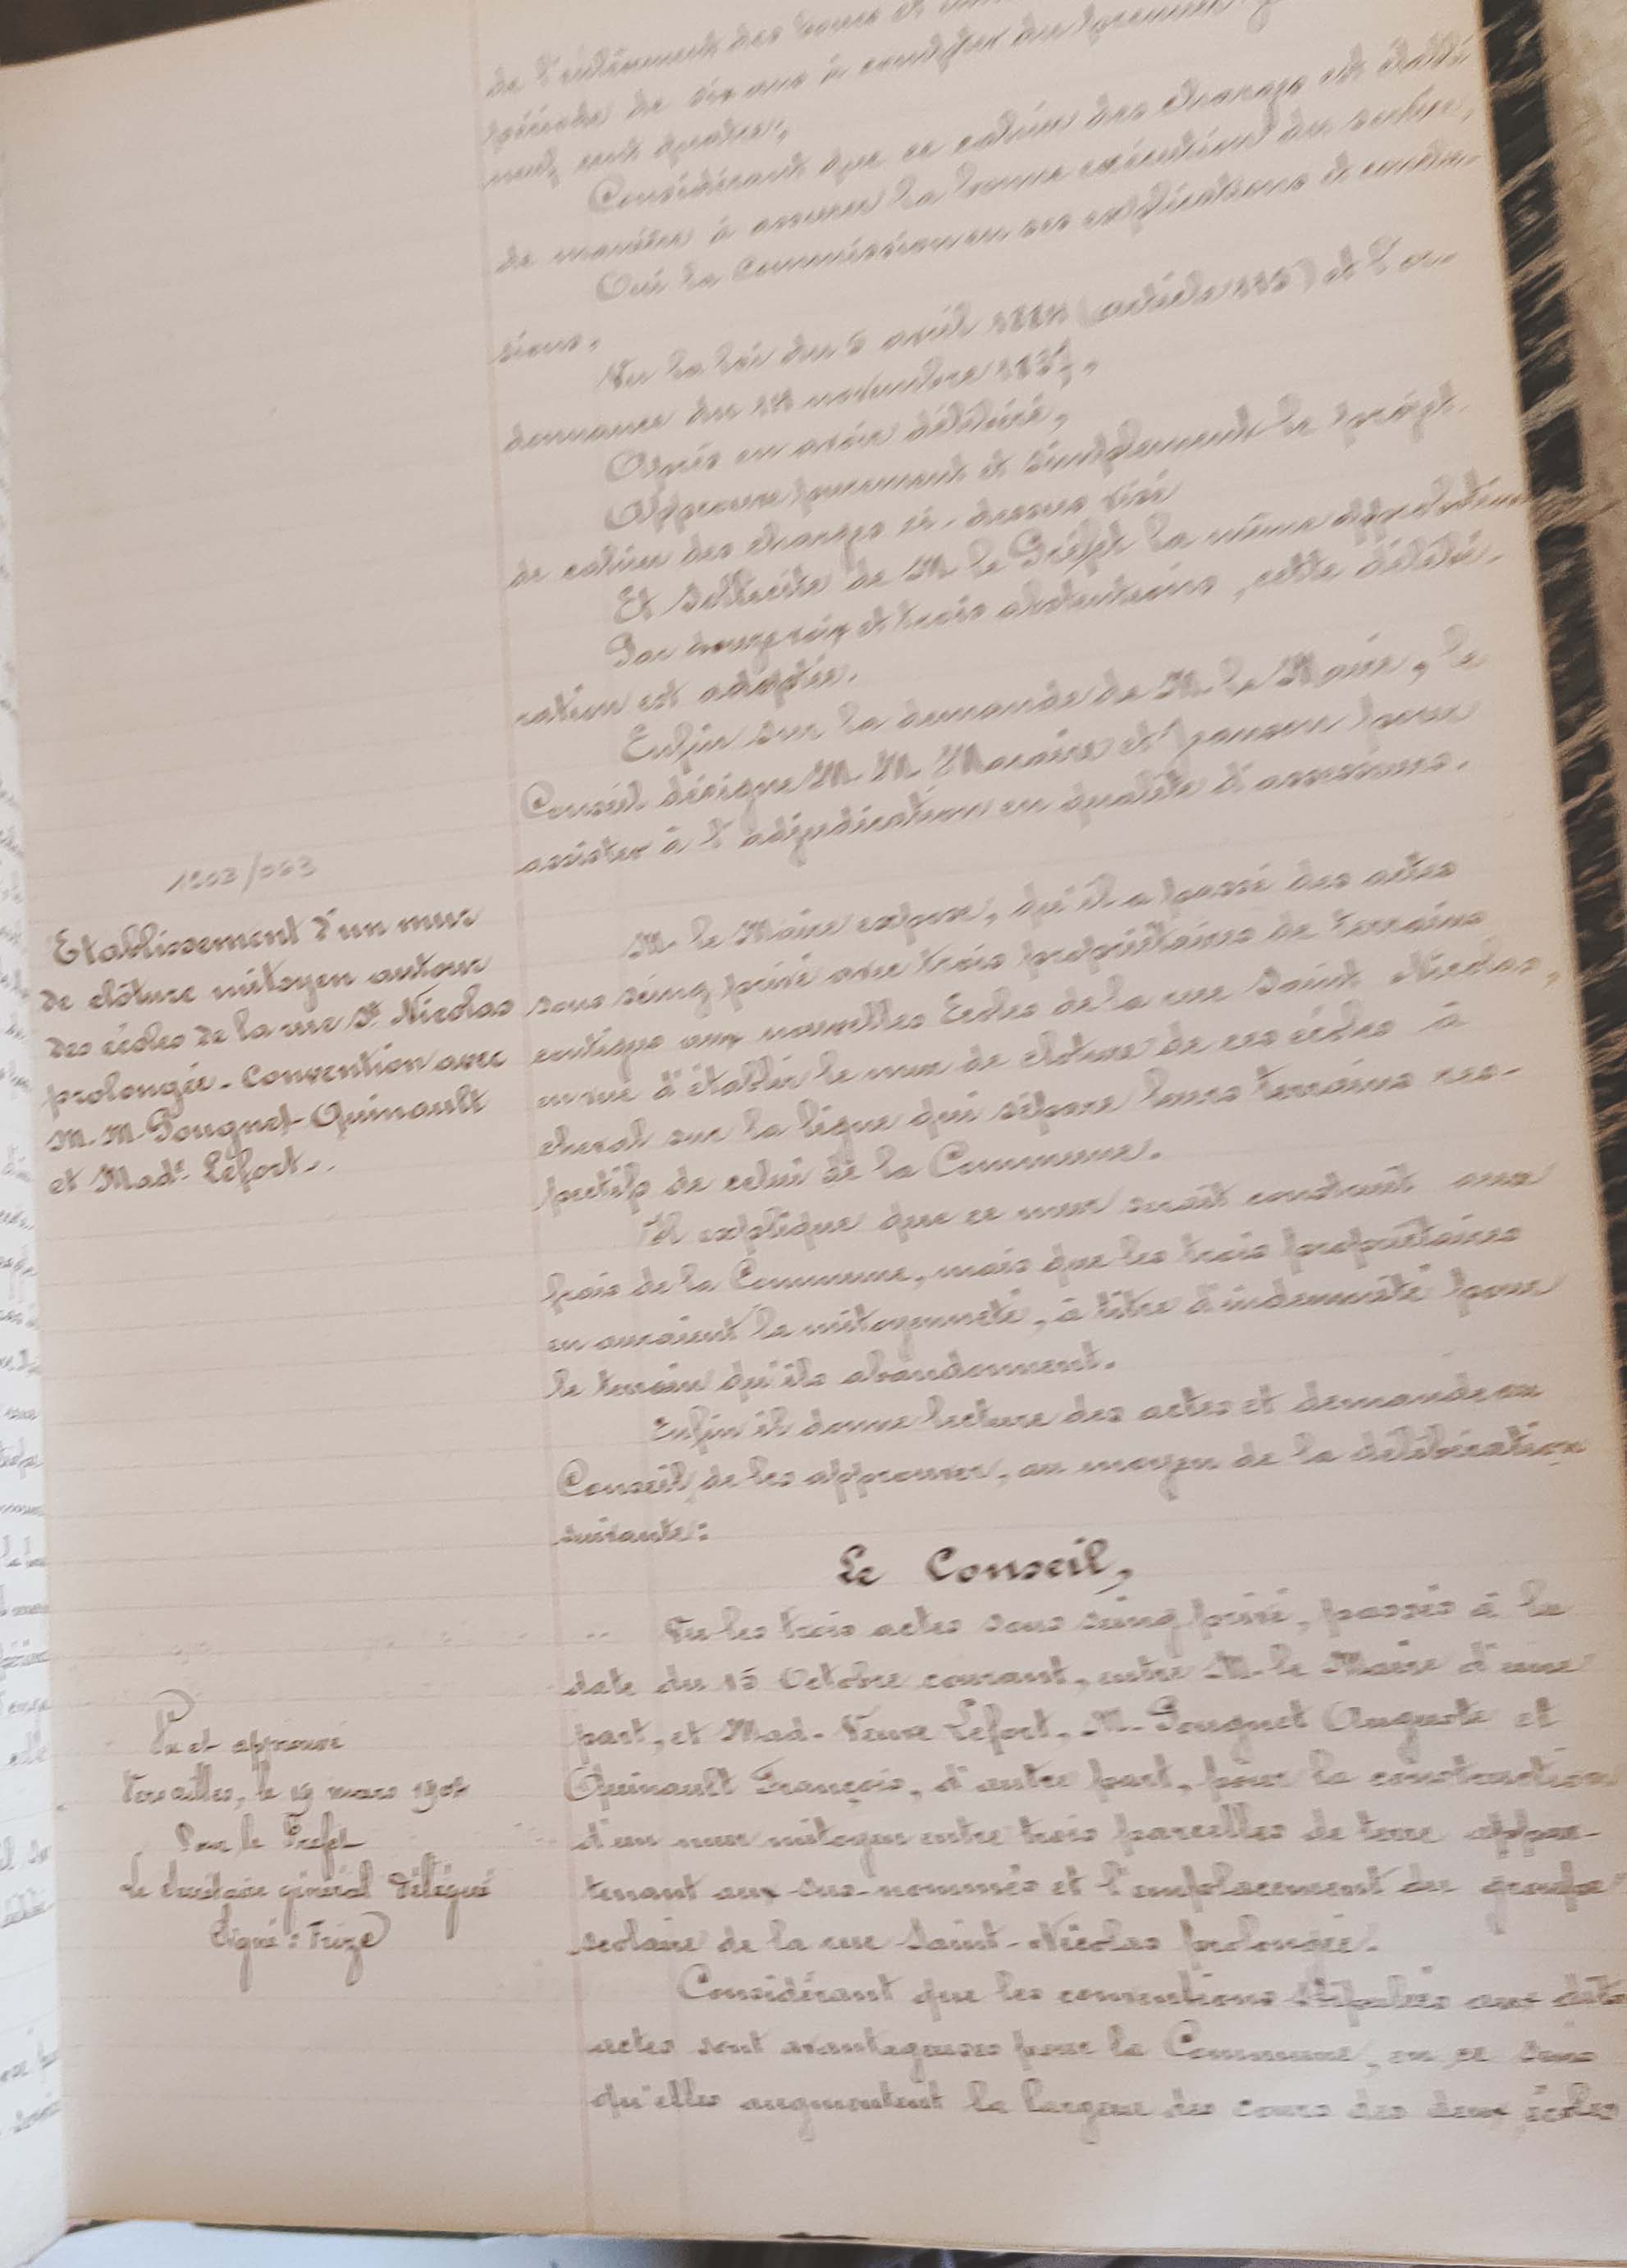 de l'enlèvement des boues et
période de six ans à compter du premier
neuf cent quatre;
Considérant que ce cahier des charges est établi
de manière à assurer la bonne exécution du service,
Ouï la Commission en ses explications et conclu-
sions,
Vu la loi du 5 avril 1884 (article 115) et l'or-
donnance du 14 novembre 1837,
Après en avoir délibéré,
Approuve purement et simplement le projet
de cahier des charges ci-dessus visé
Et sollicite de M. le Préfet la même approbation
Par douze voix et trois abstentions, cette délibé-
ration est adoptée.
Enfin sur la demande de M. le Maire, le
Conseil désigne M. M. Macaire et pour
assister à l'adjudication en qualité d'assesseurs.
1903/053
Etablissement d'un mur
de clôture mitoyen autour
des écoles de la rue St. Nicolas
prolongée. Convention avec
M. M. Pouguet-Quinault
et Made. Lefort.
M. le Maire expose, qu'il a passé des actes
sous seing privé avec trois propriétaires de terrains
contigus aux nouvelles Ecoles de la rue Saint Nicolas,
en vue d'établir le mur de clôture de ces écoles à
cheval sur la ligne qui sépare leurs terrains res-
pectifs de celui de la Commune.
Il explique que ce mur serait construit aux
frais de la Commune, mais que les trois propriétaires
en auraient la mitoyenneté, à titre d'indemnité pour
le terrain qu'ils abandonnent.
Enfin il donne lecture des actes et demande au
Conseil de les approuver, au moyen de la délibération
suivante:
Le Conseil,
Vu les trois actes sous seing privé, passés à la
date du 15 Octobre courant, entre M. le Maire d'une
part, et Mad. Veuve Lefort, M. Pouguet Auguste et
Quinault François, d'autre part, pour la construction
d'un mur mitoyen entre trois parcelles de terre appar-
tenant aux sus-nommés et l'emplacement du groupe
scolaire de la rue Saint-Nicolas prolongée.
Considérant que les conventions stipulées aux dits
actes sont avantageuses pour la Commune, en ce sens
qu'elles augmentent la largeur des cours des deux écoles
Vu et approuvé
Versailles, le 19 mars 1904
Pour le Préfet
Le Secrétaire général Délégué
Signé: Frize